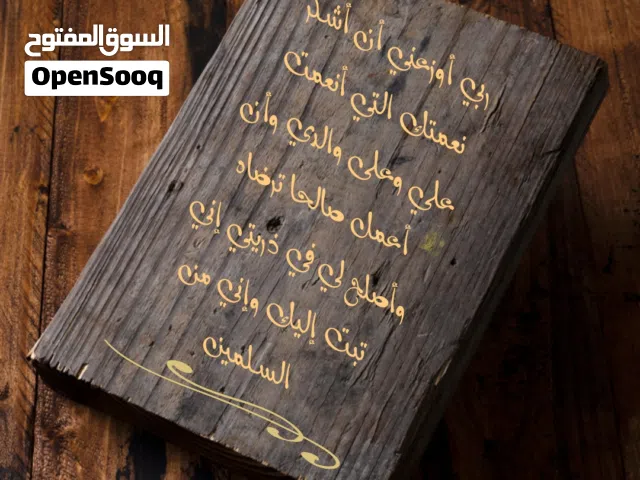 السوق المفتوح
OpenSooq
ربي أوزعني أن أشكر
نعمتك التي أنعمت
علي وعلى والدي وأن
أعمل صالحا ترضاه
وأصلح لي في ذريتي إني
تبت إليك وإني من
السلمين